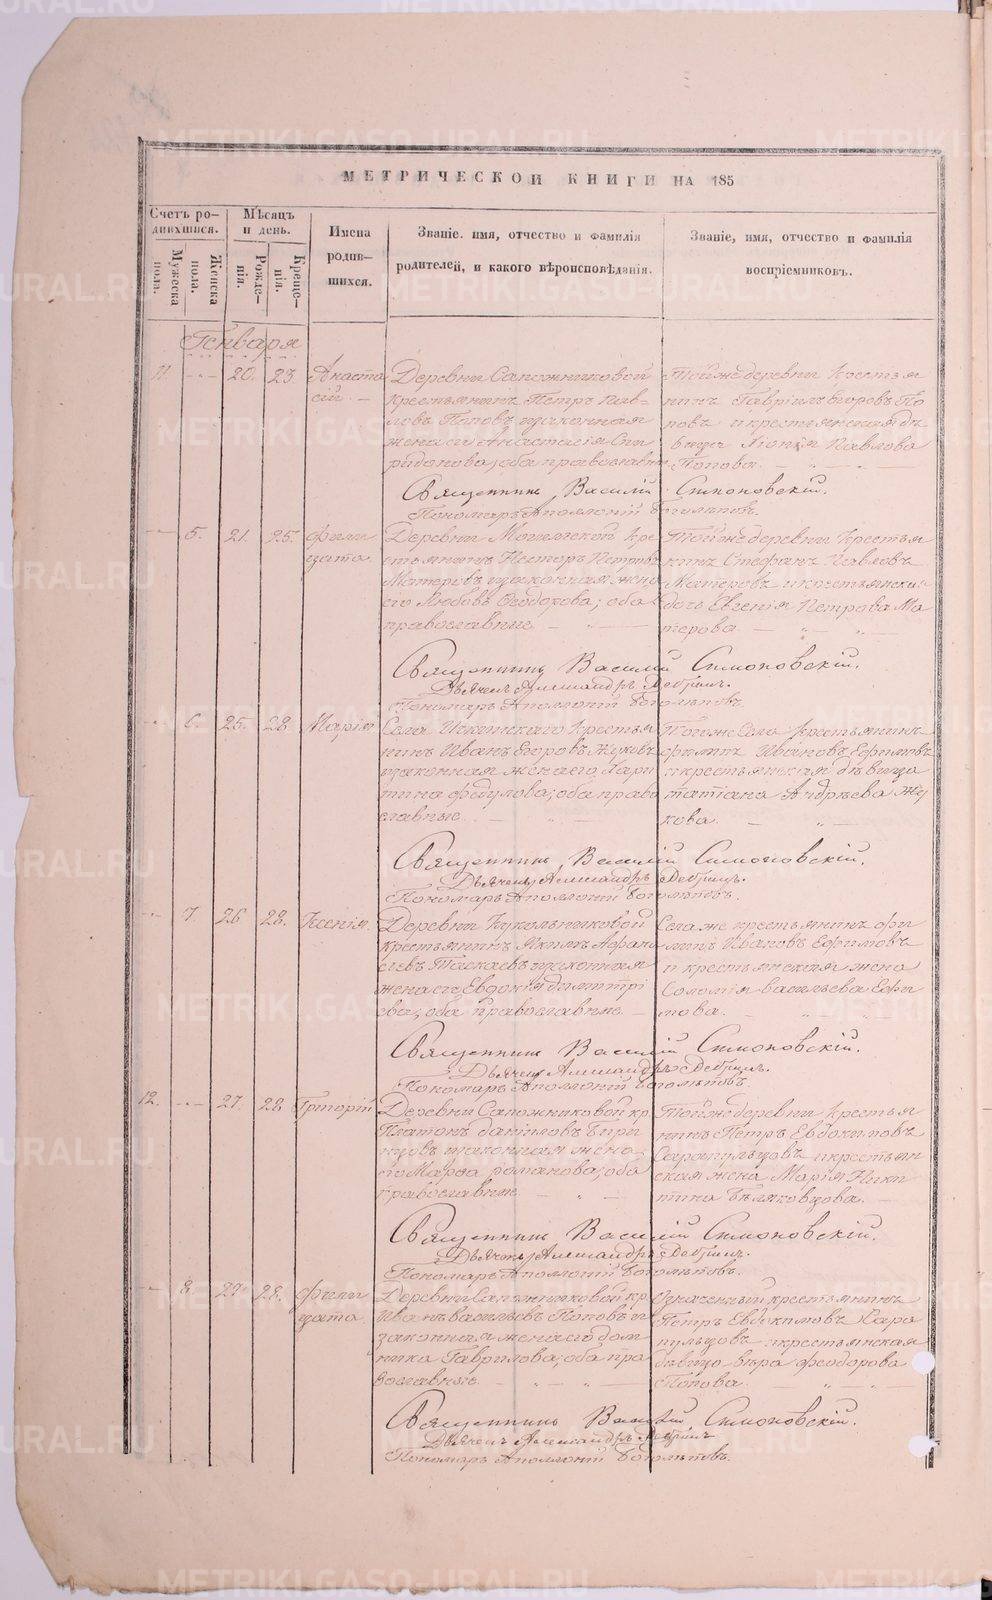 МЕТРИЧЕСКОЙ КНИГИ НА 185
Счетъ ро-
дившихся.
Мѣсяцъ
и день.
Имена
родив-
шихся.
Званіе, имя, отчество и фамилія
родителей, и какого вѣроисповѣданія.
Званіе, имя, отчество и фамилія
воспріемниковъ.
Мужеска
пола.
Женска
пола.
Рожде-
нія.
Креще-
нія.
Генваря
11. 20. 23. Анаста
сій
Деревни Сапожниковой
крестьянинъ Петръ Пав-
ловъ Поповъ и законная
жена его Анастасія Спи
ридонова; оба православн
Той же деревни крестья
нинъ Гавріилъ Егоровъ По
повъ и крестьянская дѣ
вица Павлова
Попова.
Священникъ Василій Симоновскій.
Пономарь Аполлоній Боголѣповъ.
5. 21. 25. Фили
цата
Деревни кре
стьянинъ Несторъ Петровъ
Матеровъ и законная жена
его Любовь Ѳеодорова; оба
православные
Той же деревни крестья
нинъ Стефанъ Павловъ
Матеровъ и крестьянская
дочь Евгенія Петрова Ма
терова
Священникъ Василій Симоновскій.
Дьячекъ Александръ
Пономарь Аполлоній Боголѣповъ.
6. 25. 28. Марія
Села крестья
нинъ Иванъ Егоровъ Жуковъ
и законная жена его Хари
тина Федулова; оба право
славные
Того же Села крестьянинъ
Филипъ Ивановъ Ефимовъ
и крестьянская дѣвица
Татіана Андрѣева Жу
кова.
Священникъ Василій Симоновскій.
Дьячекъ Александръ
Пономарь Аполлоній Боголѣповъ.
7. 26. 28. Ксенія.
Деревни Кукольниковой
крестьянинъ Якимъ Афана
сіевъ Таскаевъ и законная
жена его Евдокія Димитрі
ева; оба православные
Села же крестьянинъ Фи
липъ Ивановъ Ефимовъ
и крестьянская жена
Соломія Васильева Ефи
мова.
Священникъ Василій Симоновскій.
Дьячекъ Александръ
Пономарь Аполлоній Боголѣповъ.
12. 27. 28. Григорій
Деревни Сапожниковой кр
Платонъ Даніиловъ Бирю
ковъ и законная жена
его Марѳа Романова; оба
православные
Той же деревни крестья
нинъ Петръ Евдокимовъ
Сарапульцовъ и крестьян
ская жена Марія Ники
тина Бѣляковцова.
Священникъ Василій Симоновскій.
Дьячекъ Александръ
Пономарь Аполлоній Боголѣповъ.
8. 27. 28. Фили
цата.
Деревни Сапожниковой кр
Иванъ Васильевъ Поповъ и
законная жена его Дом
ника Гаврилова; оба пра
вославные
Означенный крестьянинъ
Петръ Евдокимовъ Сара
пульцовъ и крестьянская
дѣвица Вѣра Феодорова
Попова
Священникъ Василій Симоновскій.
Дьячекъ Александръ
Пономарь Аполлоній Боголѣповъ.
METRIKI.GASO-URAL.RU